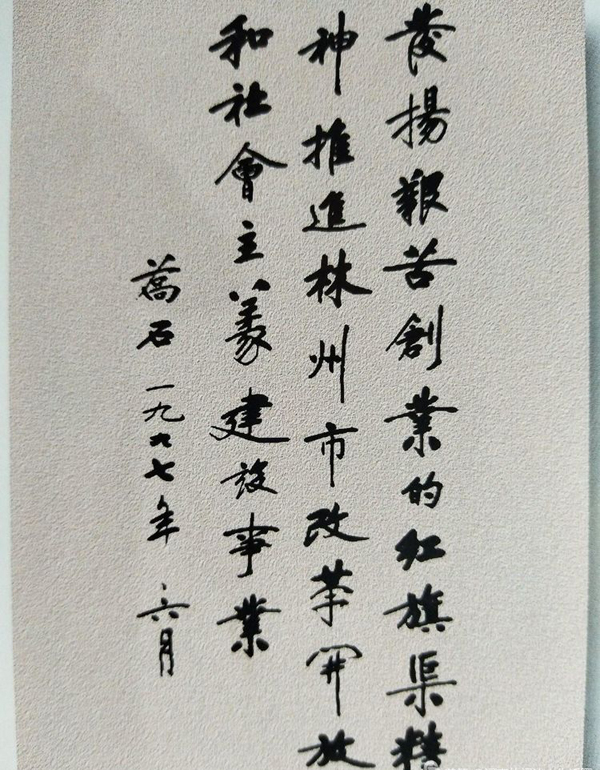 發揚艱苦創業的红旗渠精
神推進林州市改革開放
和社會主義建设事業
萬石一九九七年六月